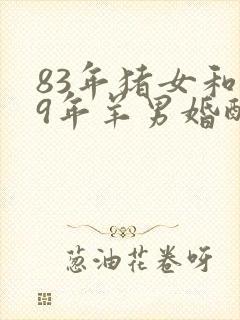 83年猪女和
9年羊男婚配
葱油花卷呀